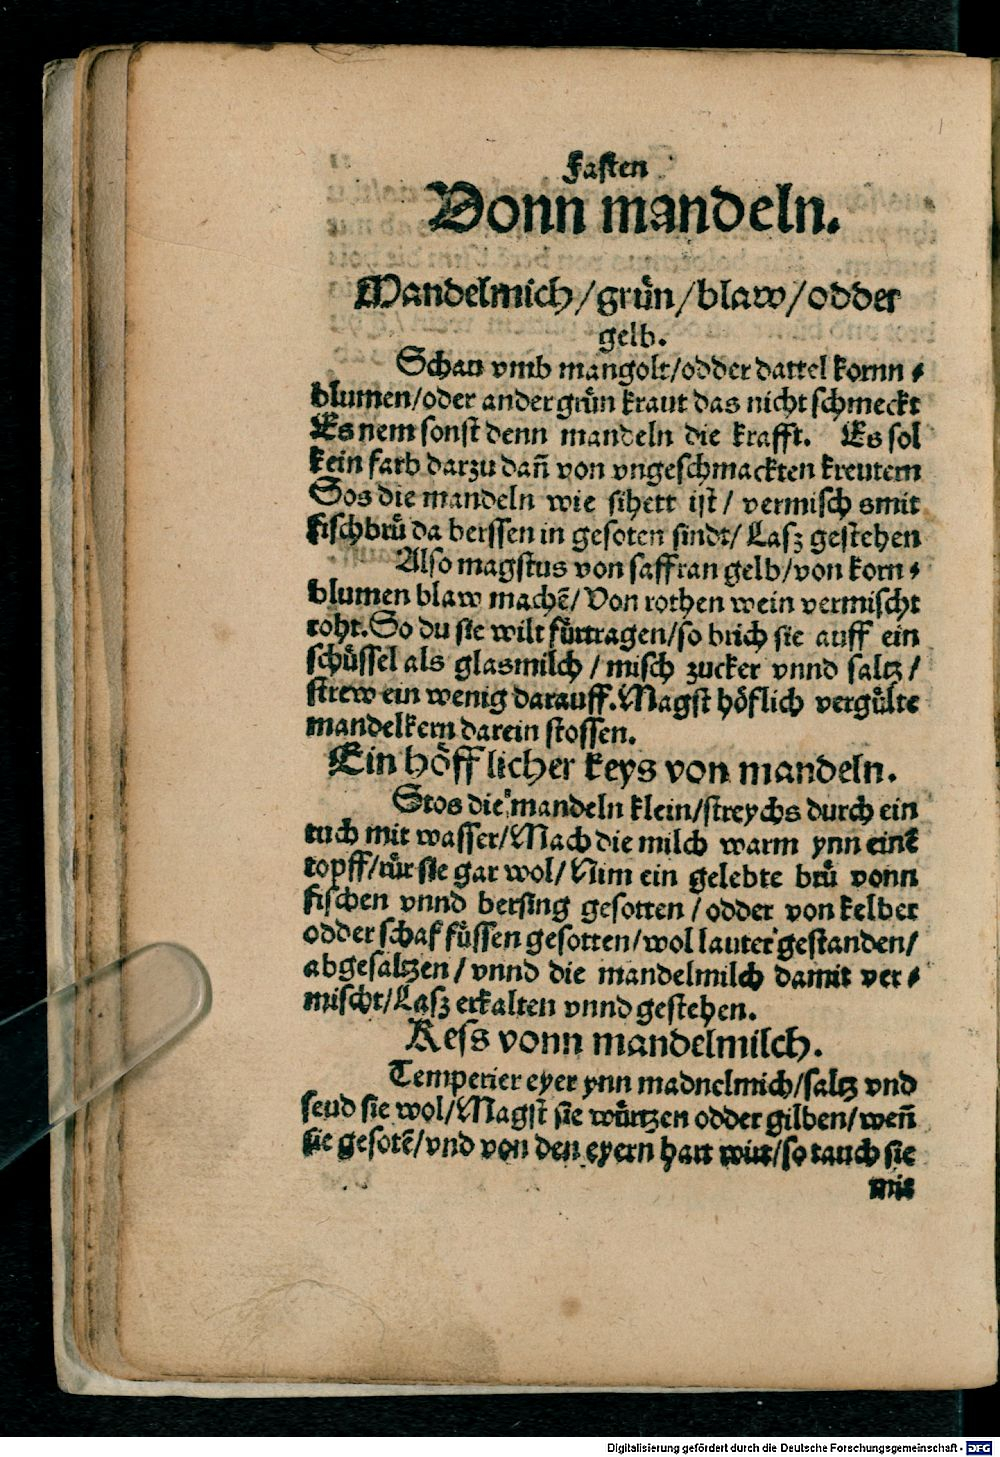 Fasten
Vonn mandeln.
Mandelmich/grün/blaw/odder
gelb.
Schau vmb mangolt/odder dattel kornn⸗
blumen/oder ander grün kraut das nicht schmeckt
Es nem sonst denn mandeln die krafft. Es sol
kein farb darzu dañ von vngeschmackten kreutern
Sos die mandeln wie sihett ist/ vermisch smit
fischbrü da berssen in gesoten sindt/ Lasz gestehen
Also magstus von saffran gelb/von korn⸗
blumen blaw machẽ/ Von rothen wein vermischt
roht. So du sie wilt fürtragen/so brich sie auff ein
schüssel als glasmilch/misch zucker vnnd saltz/
strew ein wenig darauff. Magst höflich vergülte
mandelkern darein stossen.
Ein höfflicher keys von mandeln.
Stos die mandeln klein/streychs durch ein
tuch mit wasser/Mach die milch warm ynn einẽ
topff/rür sie gar wol/Nim ein gelebte brü vonn
fischen vnnd bersing gesotten/odder von kelber
odder schaf füssen gesotten/wol lauter gestanden/
abgesaltzen/vnnd die mandelmilch damit ver⸗
mischt/Lasz erkalten vnnd gestehen.
Kess vonn mandelmilch.
Temperier eyer ynn madnelmich/saltz vnd
seud sie wol/Magst sie würtzen odder gilben/weñ
sie gesotẽ/vnd von den eyern hart wirt/so tauch sie
mit
Digitalisierung gefördert durch die Deutsche Forschungsgemeinschaft - DFG